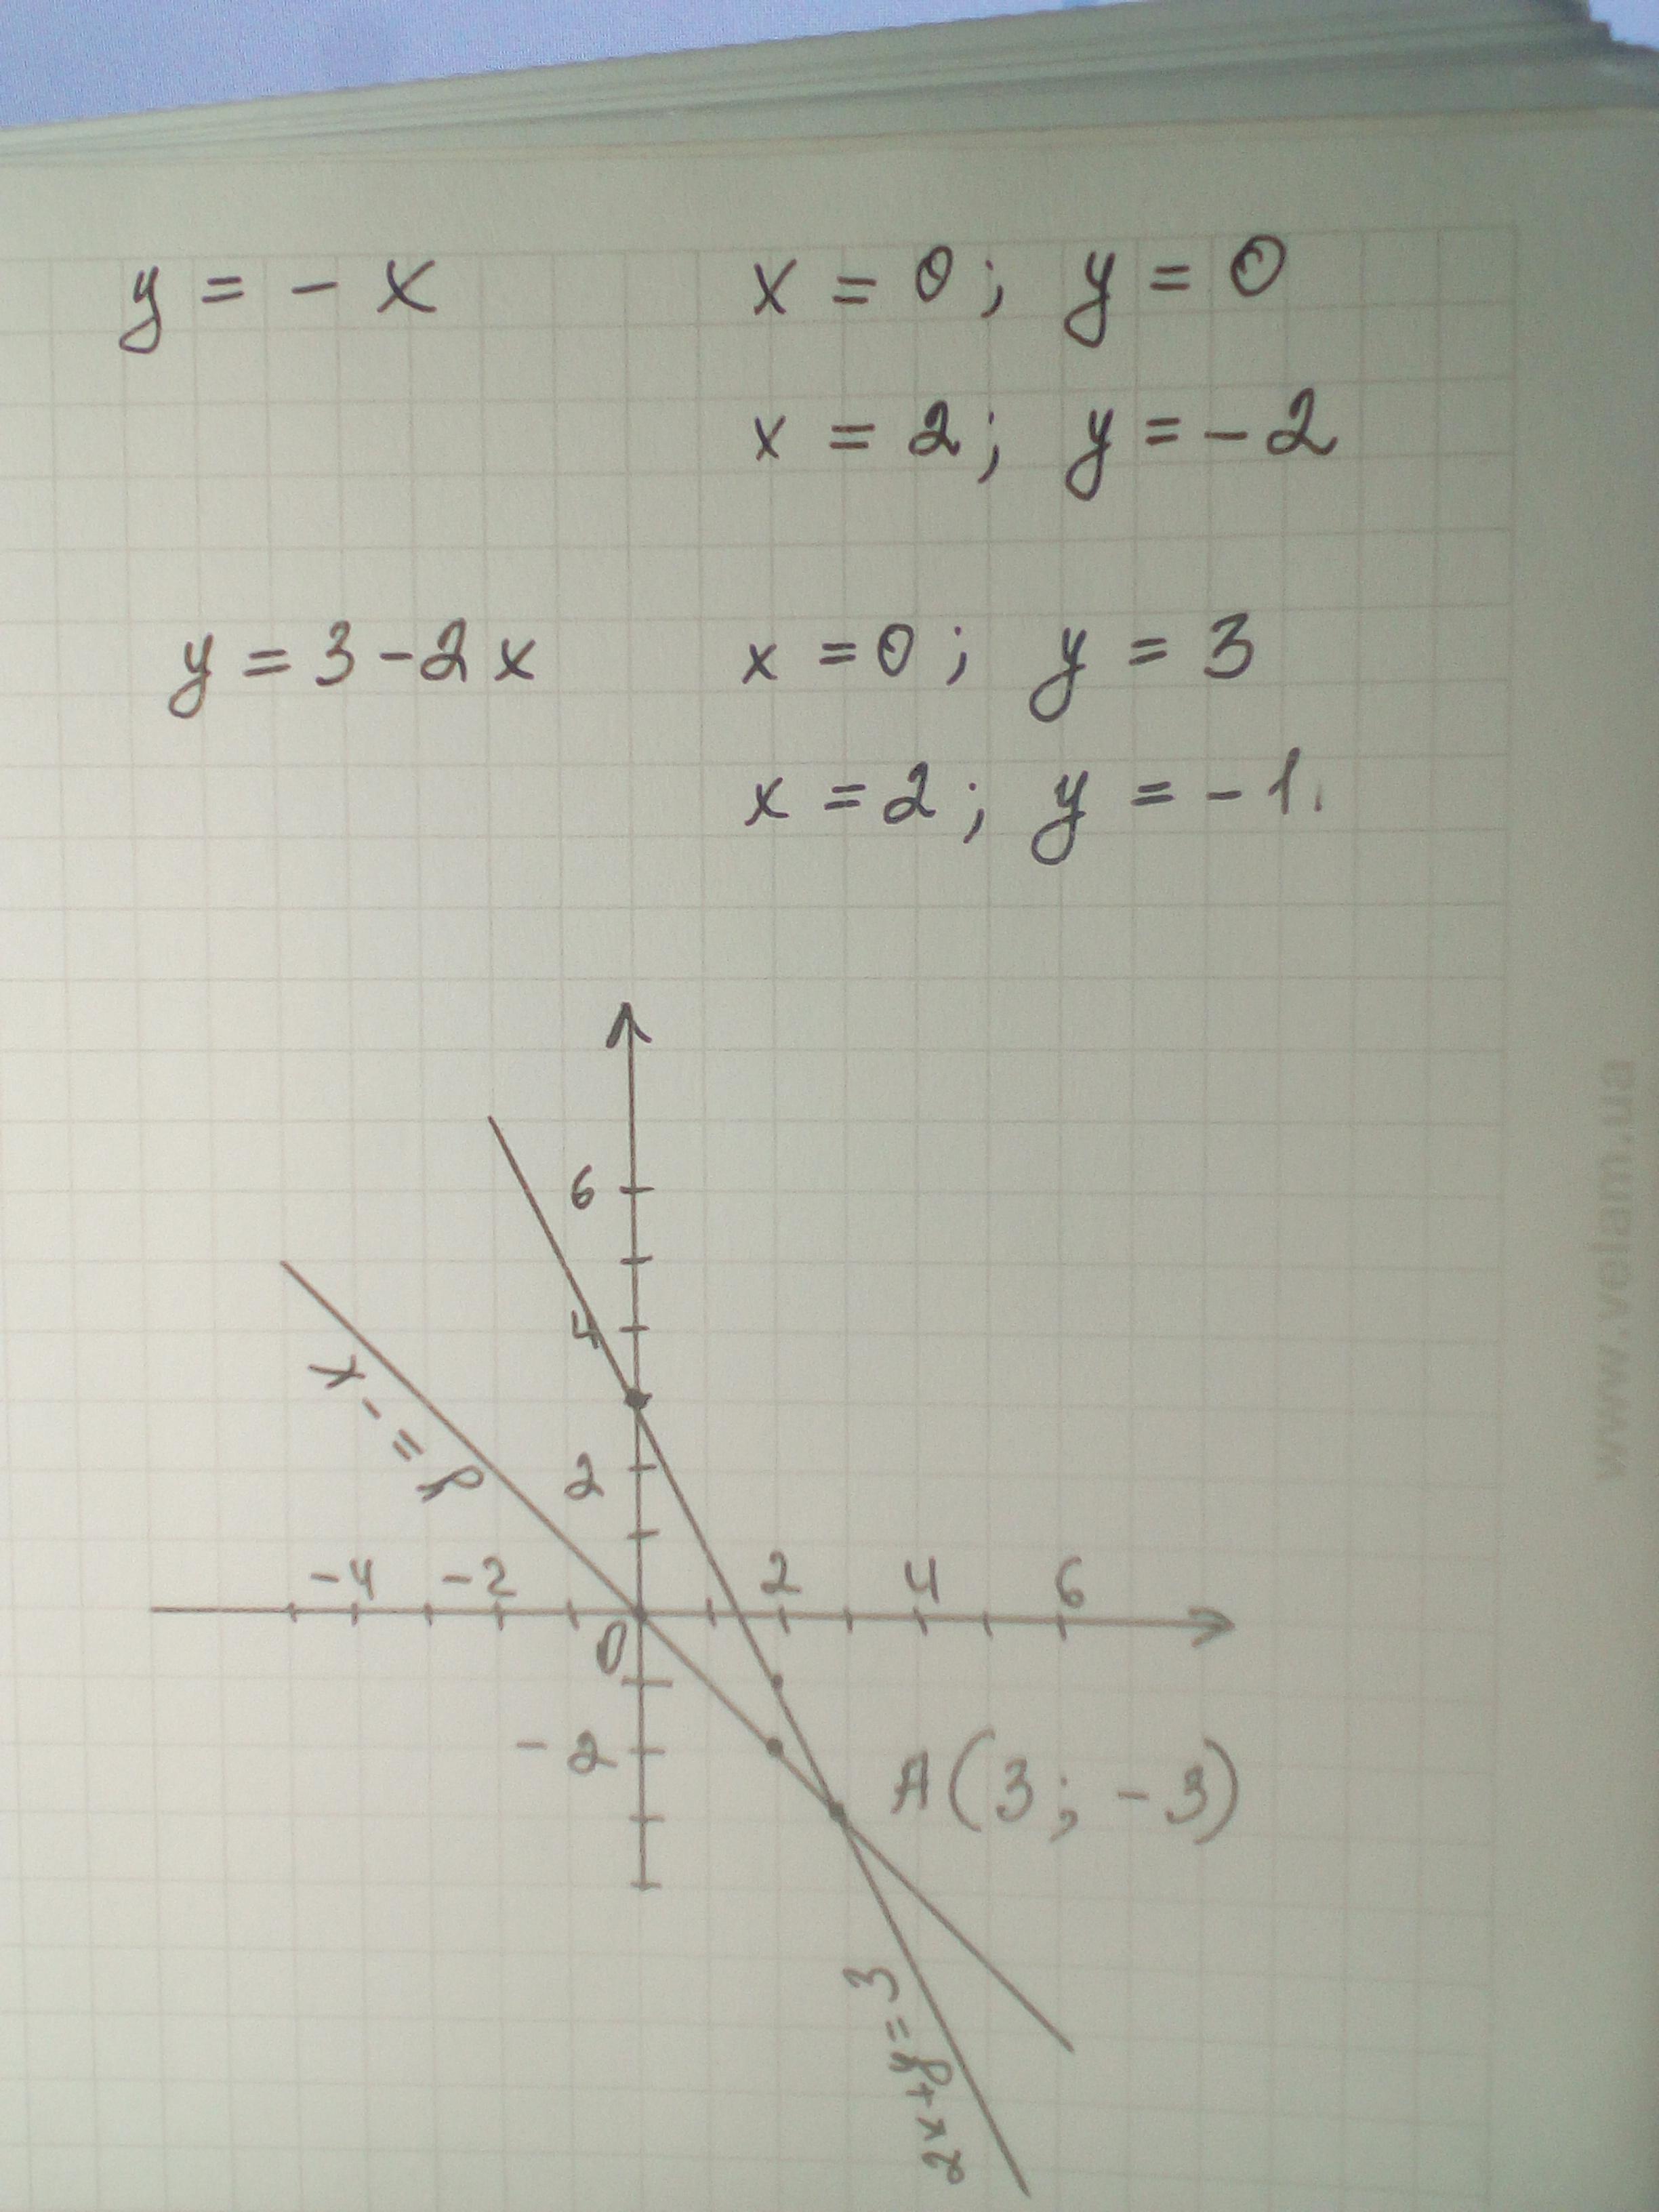 y = - x x = 0; y = 0
x = 2; y = -2
y = 3 - 2x x = 0; y = 3
x = 2; y = -1.
6
4
2
y = -x
-4 -2 2 4 6
0
-2
A(3; -3)
2x+y=3
www.velam.ua